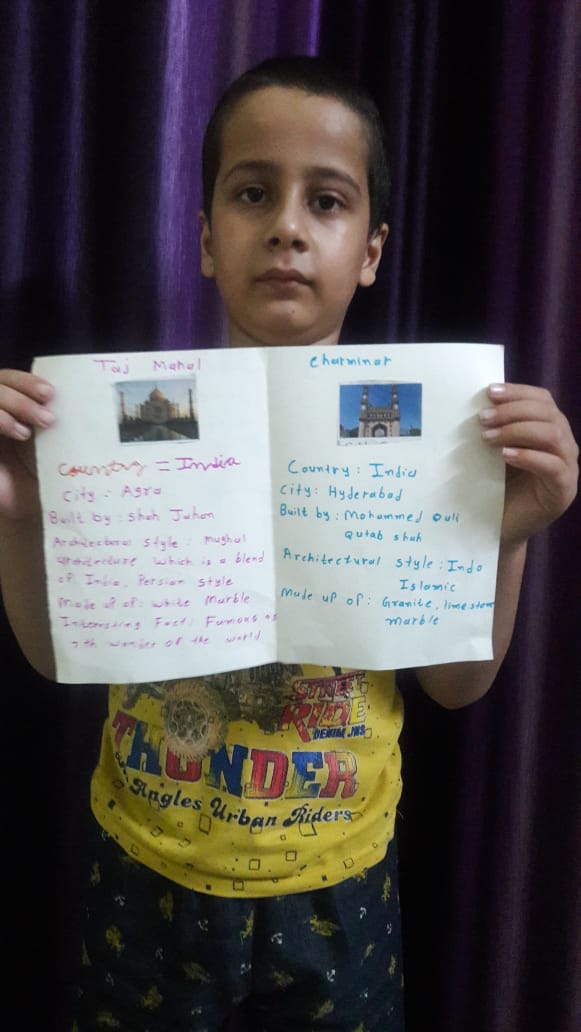 Taj Mahal
Country = India
City : Agra
Built by : Shah Jahan
Architectural style : Mughal
architecture which is a blend
of India, Persian style
Made up of: white Marble
Interesting Fact: Famous as
7th wonder of the world
Charminar
Country : India
City: Hyderabad
Built by: Mohammed Quli
Qutab shah
Architectural style : Indo
Islamic
Made up of: Granite, limestone
marble
STREET
RIDE
DENIM JNS
THUNDER
Angles Urban Riders